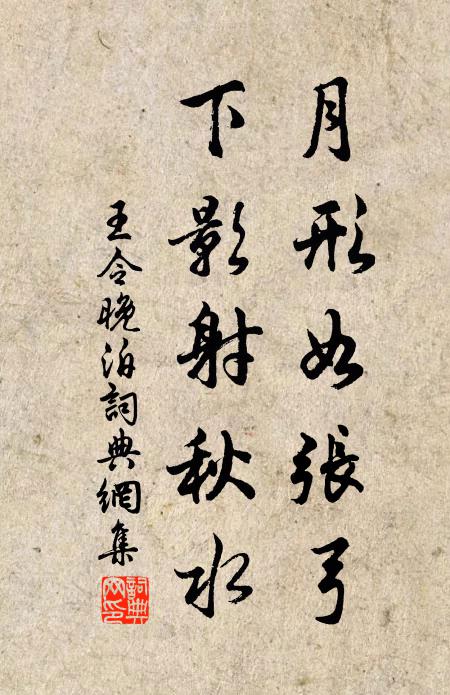 月形如張弓
下影射秋水
王令晚泊詞典網集
詞典网印